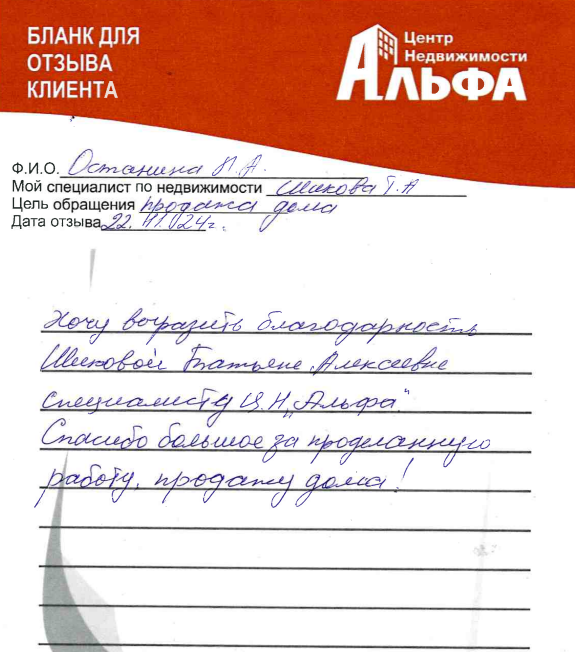 БЛАНК ДЛЯ
ОТЗЫВА
КЛИЕНТА
Центр
Недвижимости
АЛЬФА
Ф.И.О. Останина Н.А.
Мой специалист по недвижимости Шикова Т.А
Цель обращения продажа дома
Дата отзыва 22.11.024г.
Хочу выразить благодарность
Шиковой Татьяне Алексеевне
специалисту Ц.Н „Альфа"
Спасибо большое за проделанную
работу, продажу дома!